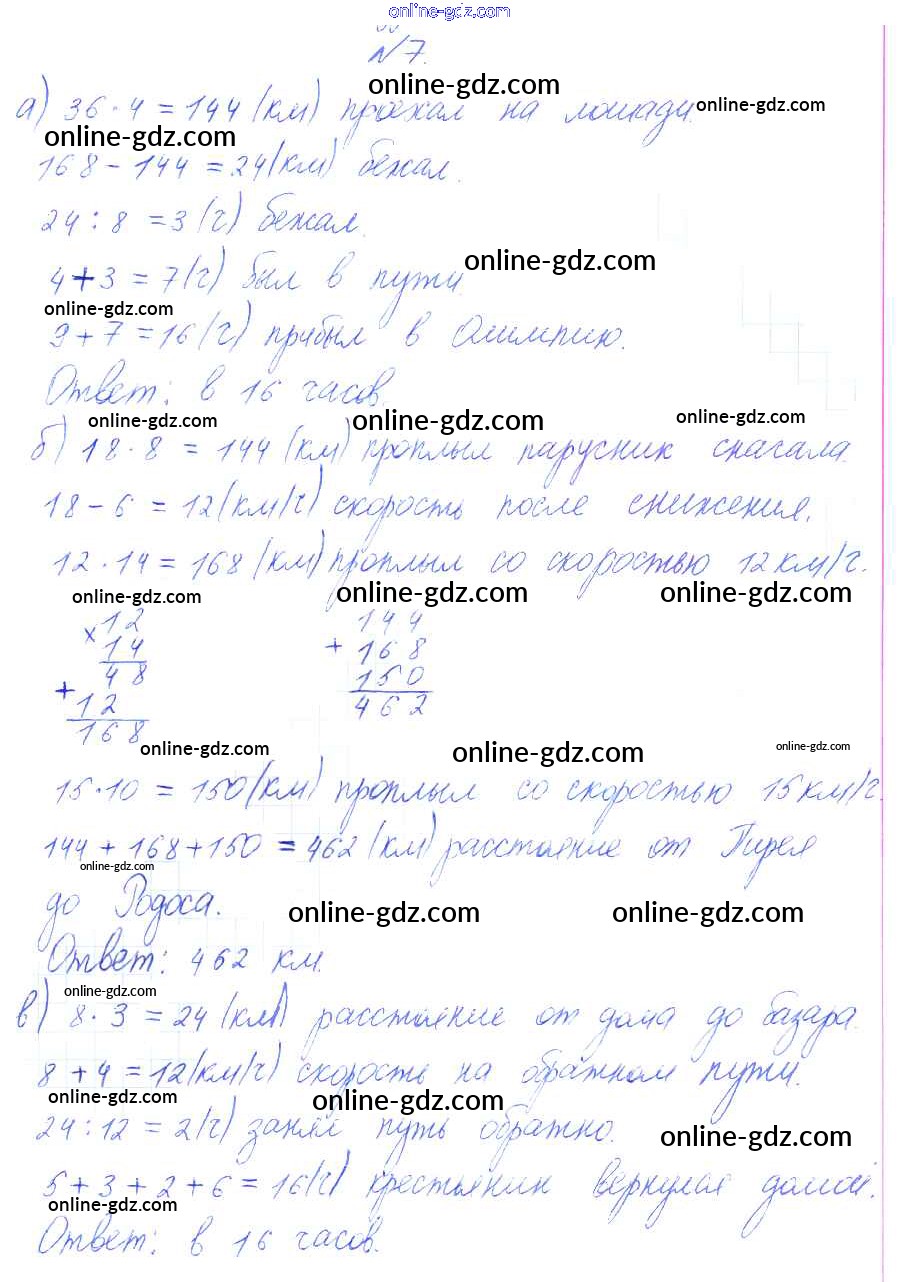 online-gdz.com
№7.
online-gdz.com
а) 36 · 4 = 144 (км) проехал на лошади. online-gdz.com
online-gdz.com
168 - 144 = 24 (км) бежал.
24 : 8 = 3 (ч) бежал.
online-gdz.com
4 + 3 = 7 (ч) был в пути.
online-gdz.com
9 + 7 = 16 (ч) прибыл в Олимпию.
Ответ: в 16 часов.
online-gdz.com online-gdz.com online-gdz.com
б) 18 · 8 = 144 (км) проплыл парусник сначала.
18 - 6 = 12 (км/ч) скорость после снижения.
12 · 14 = 168 (км) проплыл со скоростью 12 км/ч.
online-gdz.com online-gdz.com online-gdz.com
× 12 144
14 + 168
48 150
+ 12 462
168
online-gdz.com online-gdz.com online-gdz.com
15 · 10 = 150 (км) проплыл со скоростью 15 км/ч.
144 + 168 + 150 = 462 (км) расстояние от Пирея
online-gdz.com
до Родоса.
online-gdz.com online-gdz.com
Ответ: 462 км.
online-gdz.com
в) 8 · 3 = 24 (км) расстояние от дома до базара.
8 + 4 = 12 (км/ч) скорость на обратном пути.
online-gdz.com online-gdz.com
24 : 12 = 2 (ч) занял путь обратно.
online-gdz.com
5 + 3 + 2 + 6 = 16 (ч) крестьянин вернулся домой.
online-gdz.com
Ответ: в 16 часов.